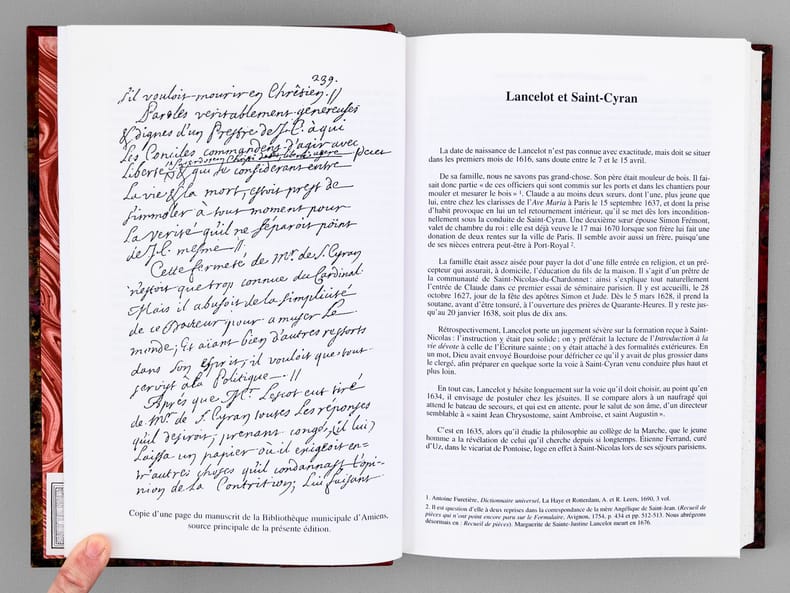 239.
s'il vouloit mourir en Chrêtien. //
Paroles veritablement genereuses
& dignes d'un Prestre de J.C. à qui
Les Conciles commandent d'agir avec
liberté & qui le considerant entre
La vie & la mort, estoit prest de
s'immoler à tout moment pour
La Verité qu'il ne separoit point
de J.C. mesme //.
Cette fermeté de Mr. de S. Cyran
n'estoit que trop connue du Cardinal
Mais il abusoit de la simplicité
de ce Docteur pour amuser Le
monde; Et aiant bien d'autres ressorts
dans son Esprit, il vouloit que tout
servist à la Politique. //
Après que Mr. Lescot eut tiré
de Mr. de S. Cyran toutes Les reponses
qu'il desiroit, prenant congé, il lui
Laissa un papier où il exigeoit en-
tr'autres choses qu'il condannast L'opi-
nion de La Contrition; Lui faisant
Copie d'une page du manuscrit de la Bibliothèque municipale d'Amiens,
source principale de la présente édition.
Lancelot et Saint-Cyran
La date de naissance de Lancelot n'est pas connue avec exactitude, mais doit se situer
dans les premiers mois de 1616, sans doute entre le 7 et le 15 avril.
De sa famille, nous ne savons pas grand-chose. Son père était mouleur de bois. Il fai-
sait donc partie « de ces officiers qui sont commis sur les ports et dans les chantiers pour
mouler et mesurer le bois » 1. Claude a au moins deux sœurs, dont l'une, plus jeune que
lui, entre chez les clarisses de l'Ave Maria à Paris le 15 septembre 1637, et dont la prise
d'habit provoque en lui un tel retournement intérieur, qu'il se met dès lors incondition-
nellement sous la conduite de Saint-Cyran. Une deuxième sœur épouse Simon Frémont,
valet de chambre du roi : elle est déjà veuve le 17 mai 1670 lorsque son frère lui fait une
donation de deux rentes sur la ville de Paris. Il semble avoir aussi un frère, puisqu'une
de ses nièces entrera peut-être à Port-Royal 2.
La famille était assez aisée pour payer la dot d'une fille entrée en religion, et un pré-
cepteur qui assurait, à domicile, l'éducation du fils de la maison. Il s'agit d'un prêtre de
la communauté de Saint-Nicolas-du-Chardonnet : ainsi s'explique tout naturellement
l'entrée de Claude dans ce premier essai de séminaire parisien. Il y est accueilli, le 28
octobre 1627, jour de la fête des apôtres Simon et Jude. Dès le 5 mars 1628, il prend la
soutane, avant d'être tonsuré, à l'ouverture des prières de Quarante-Heures. Il y reste jus-
qu'au 20 janvier 1638, soit plus de dix ans.
Rétrospectivement, Lancelot porte un jugement sévère sur la formation reçue à Saint-
Nicolas : l'instruction y était peu solide ; on y préférait la lecture de l'Introduction à la
vie dévote à celle de l'Ecriture sainte ; on y était attaché à des formalités extérieures. En
un mot, Dieu avait envoyé Bourdoise pour défricher ce qu'il y avait de plus grossier dans
le clergé, afin préparer en quelque sorte la voie à Saint-Cyran venu conduire plus haut et
plus loin.
En tout cas, Lancelot y hésite longuement sur la voie qu'il doit choisir, au point qu'en
1634, il envisage de postuler chez les jésuites. Il se compare alors à un naufragé qui
attend le bateau de secours, et qui est en attente, pour le salut de son âme, d'un directeur
semblable à « saint Jean Chrysostome, saint Ambroise, et saint Augustin ».
C'est en 1635, alors qu'il étudie la philosophie au collège de la Marche, que le jeune
homme a la révélation de celui qu'il cherche depuis si longtemps. Étienne Ferrand, curé
d'Uz, dans le vicariat de Pontoise, loge en effet à Saint-Nicolas lors de ses séjours parisiens.
1. Antoine Furetière, Dictionnaire universel, La Haye et Rotterdam, A. et R. Leers, 1690, 3 vol.
2. Il est question d'elle à deux reprises dans la correspondance de la mère Angélique de Saint-Jean. (Recueil de
pièces qui n'ont point encore paru sur le Formulaire, Avignon, 1754, p. 434 et pp. 512-513. Nous abrégeons
désormais en : Recueil de pièces). Marguerite de Sainte-Justine Lancelot meurt en 1676.